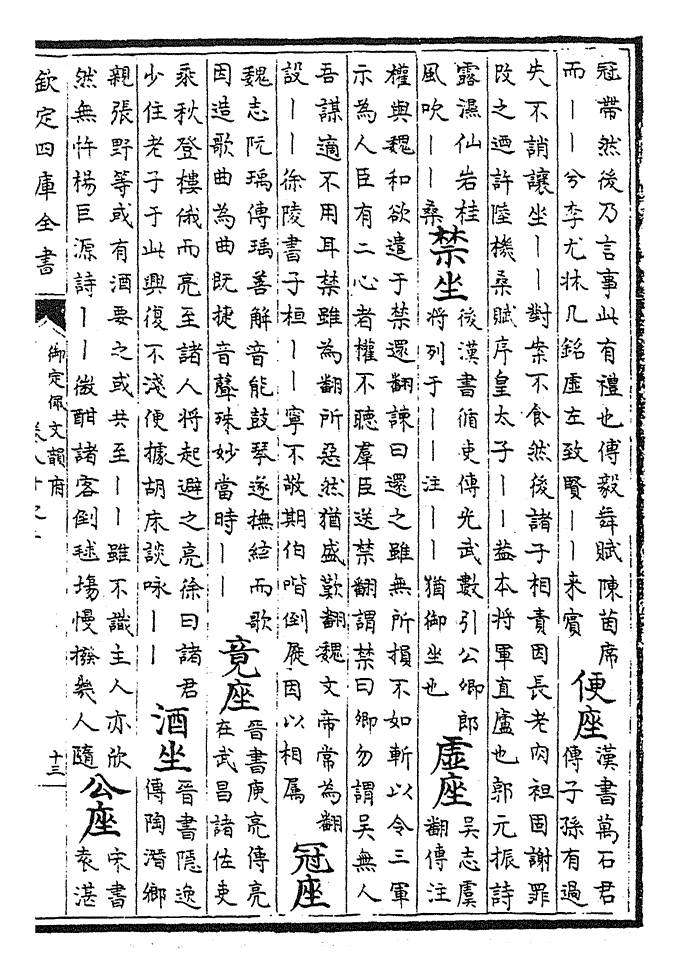 冠帶然後乃言事此有禮也傅毅舞賦陳茵席
而丨丨兮李尤牀几銘虛左致賢丨丨来賓
便座
漢書萬石君
傳子孫有過
失不誚讓坐丨丨對案不食然後諸子相責因長老肉袒固謝罪
改之迺許陸機桑賦序皇太子丨丨葢本將軍直廬也郭元振詩
露濕仙岩桂
風吹丨丨桑
禁坐
後漢書循吏傳光武數引公卿郎
將列于丨丨注丨丨猶御坐也
虛座
吳志虞
翻傳注
權與魏和欲遣于禁還翻諫曰還之雖無所損不如斬以令三軍
示為人臣有二心者權不聽羣臣送禁翻謂禁曰卿勿謂吳無人
吾謀適不用耳禁雖為翻所惡然猶盛歎翻魏文帝常為翻
設丨丨徐陵書子桓丨丨寧不敬期伯喈倒屣因以相属
冠座
魏志阮瑀傳瑀善解音能鼓琴遂撫絃而歌
因造歌曲為曲既捷音聲殊妙當時丨丨
竟座
晉書庾亮傳亮
在武昌諸佐吏
乘秋登樓俄而亮至諸人將起避之亮徐曰諸君
少住老子于此興復不淺便據胡床談咏丨丨
酒坐
晉書隱逸
傳陶潛鄉
親張野等或有酒要之或共至丨丨雖不識主人亦欣
然無忤楊巨源詩丨丨微酣諸客倒毬塲慢撥幾人隨
公座
宋書
袁湛
欽定四庫全書
御定佩文韻府
卷八十之
十三